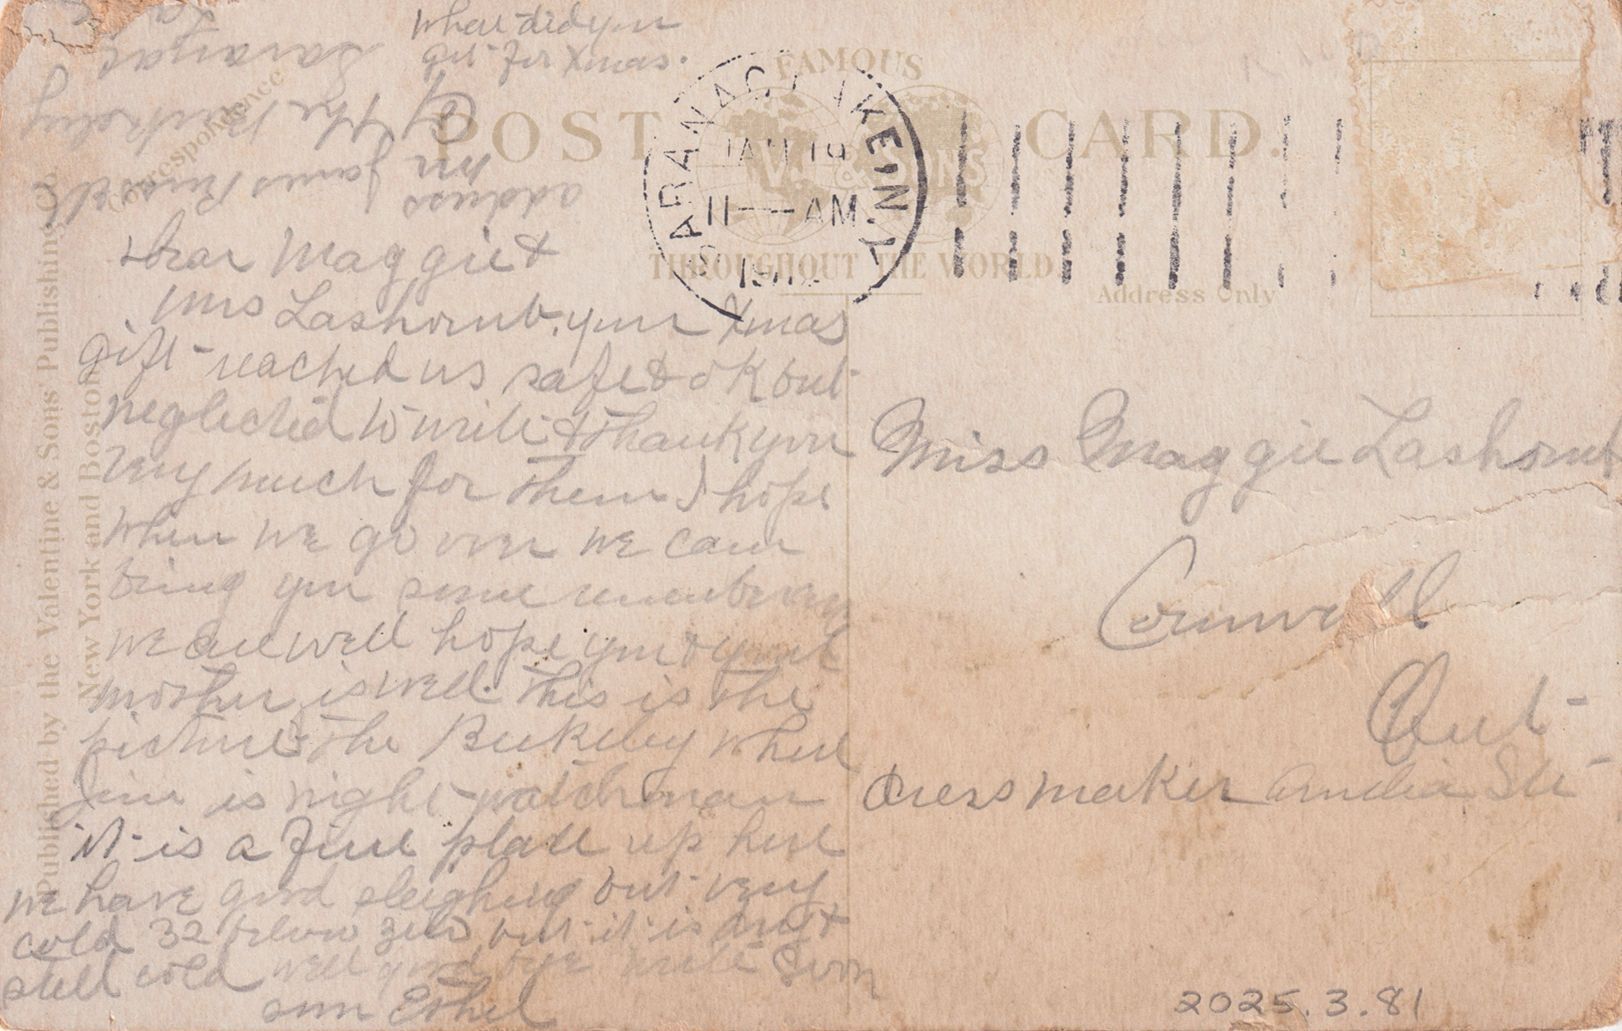 What did you
get for Xmas.
address
Mr James Russell
℅ The Berkeley
Saranac
La
Correspondence
FAMOUS
POST CARD.
V. & SONS
THROUGHOUT THE WORLD
Address Only
SARANAC LAKE N.Y.
JAN 19
11 — AM
191
Published by the Valentine & Sons' Publishing Co.
New York and Boston
Dear Maggie &
Mrs Lashomb, your Xmas
gift reached us safe & OK but
neglected to write & thank you
very much for them I hope
when we go over we can
bring you some
we are well hope you & your
mother is well. This is the
picture the Berkeley where
Jim is night watchman
it is a fine place up here
we have good sleighing but very
cold 32 below zero but it is dry &
still cold well good bye write soon
Ethel
Miss Maggie Lashomb
Cornwall
Ont
dressmaker Amelia Str
2025.3.81